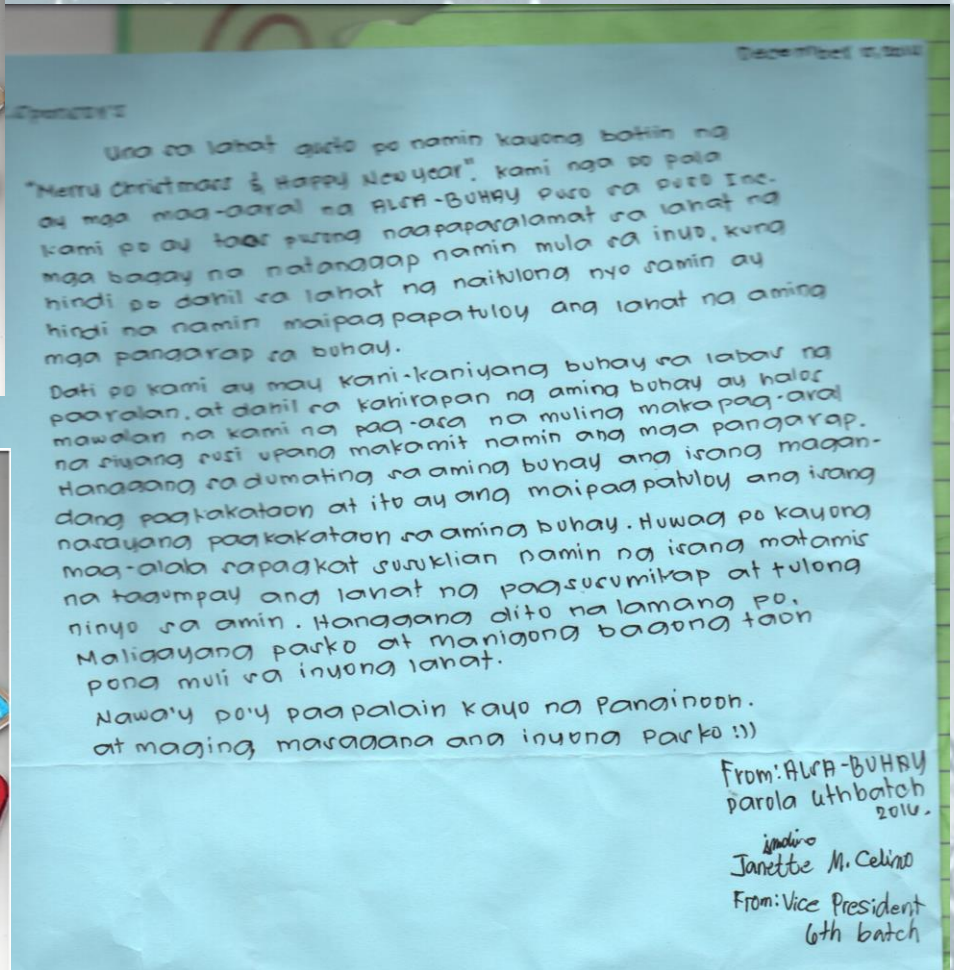 December
Sponsors
Una sa lahat gusto po namin kayong batiin ng
"Merry Christmass & Happy New year". Kami nga po pala
ay mga mag-aaral na ALSA-BUHAY Puso sa Puso Inc.
kami po ay taos pusong nagpapasalamat sa lahat ng
mga bagay na natanggap namin mula sa inyo, kung
hindi po dahil sa lahat ng naitulong nyo samin ay
hindi na namin maipagpapatuloy ang lahat ng aming
mga pangarap sa buhay.
Dati po kami ay may kani-kaniyang buhay sa labas ng
paaralan, at dahil sa kahirapan ng aming buhay ay halos
mawalan na kami ng pag-asa na muling makapag-aral
na siyang susi upang makamit namin ang mga pangarap.
Hanggang sa dumating sa aming buhay ang isang magan-
dang pagkakataon at ito ay ang maipagpatuloy ang isang
nasayang pagkakataon sa aming buhay. Huwag po kayong
mag-alala sapagkat susuklian namin ng isang matamis
na tagumpay ang lahat ng pagsusumikap at tulong
ninyo sa amin. Hanggang dito na lamang po,
Maligayang pasko at Manigong bagong taon
pong muli sa inyong lahat.
Nawa'y po'y pagpalain kayo ng Panginoon.
at maging masagana ang inyong Pasko :))
From: ALSA-BUHAY
parola 6th batch
2016.
Janette M. Celino
From: Vice President
6th batch